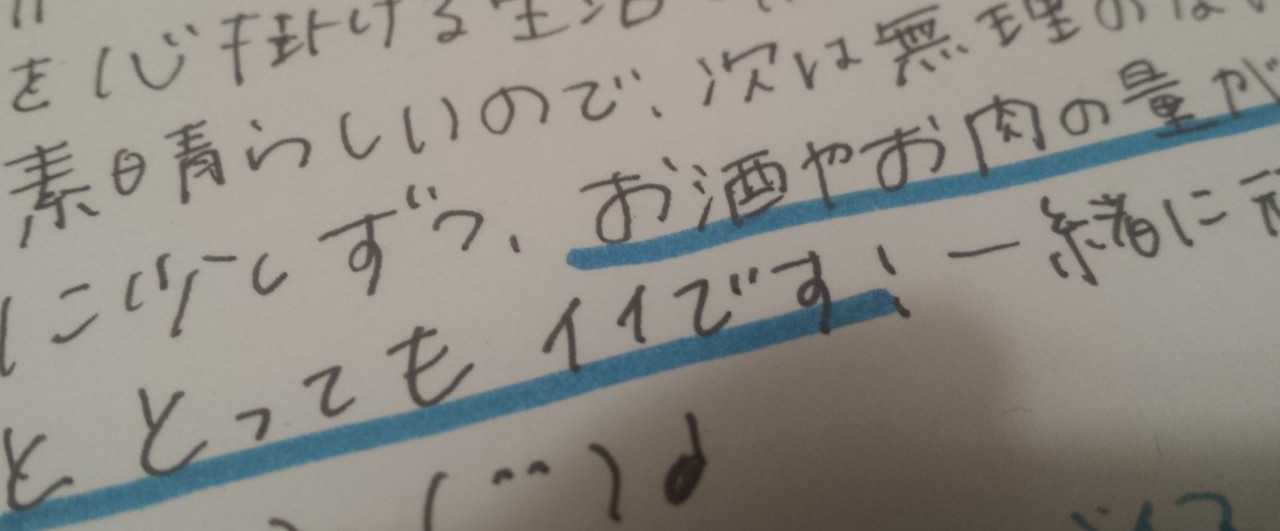 を心掛ける生活
素晴らしいので、次は無理のない
に少しずつ、お酒やお肉の量が
ととってもイイです! 一緒に
(¨)d